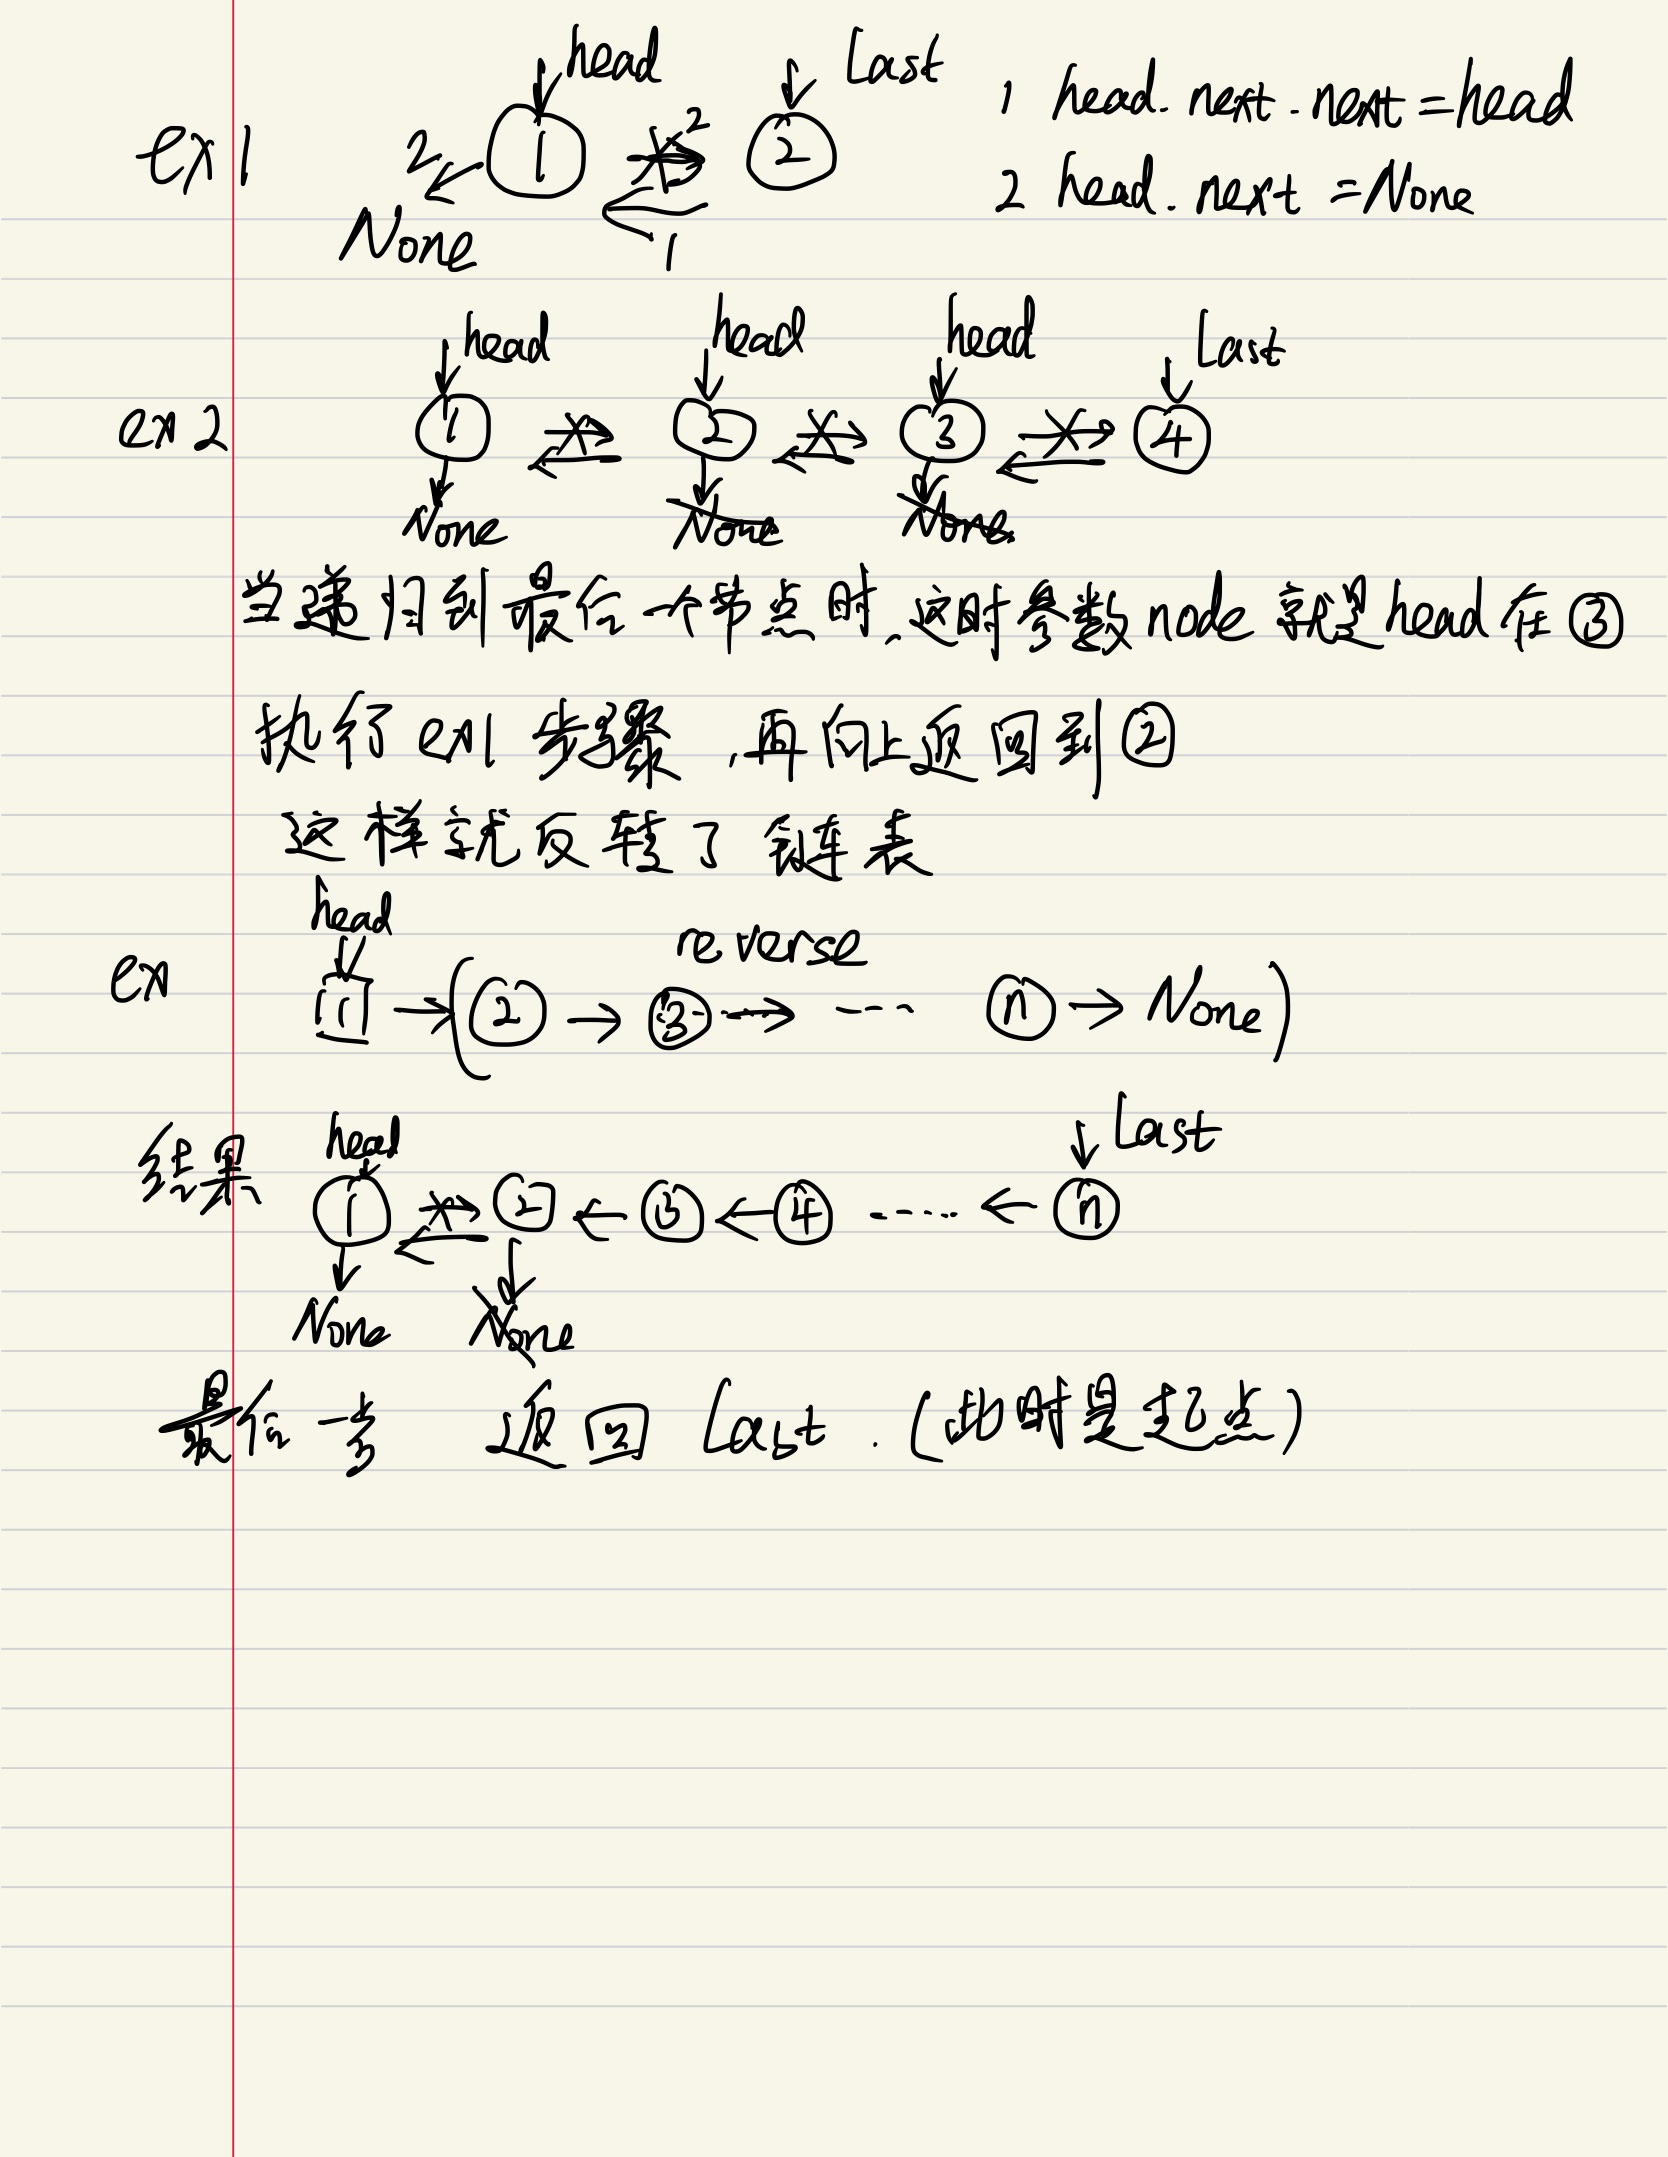 head Last
ex1 2 1 2 2 1 head.next.next = head
None 1 2 head.next = None
head head head Last
ex2 1 2 3 4
None None None
当递归到最后一个节点时,这时参数node 就是head在③
执行ex1步骤,再向上返回到②
这样就反转了链表
head reverse
ex 1 → (② → ③ → ---- ⓝ → None)
结果 head Last
① ② ← ③ ← ④ ..... ← ⓝ
None None
最后一步 返回 Last.(此时是起点)